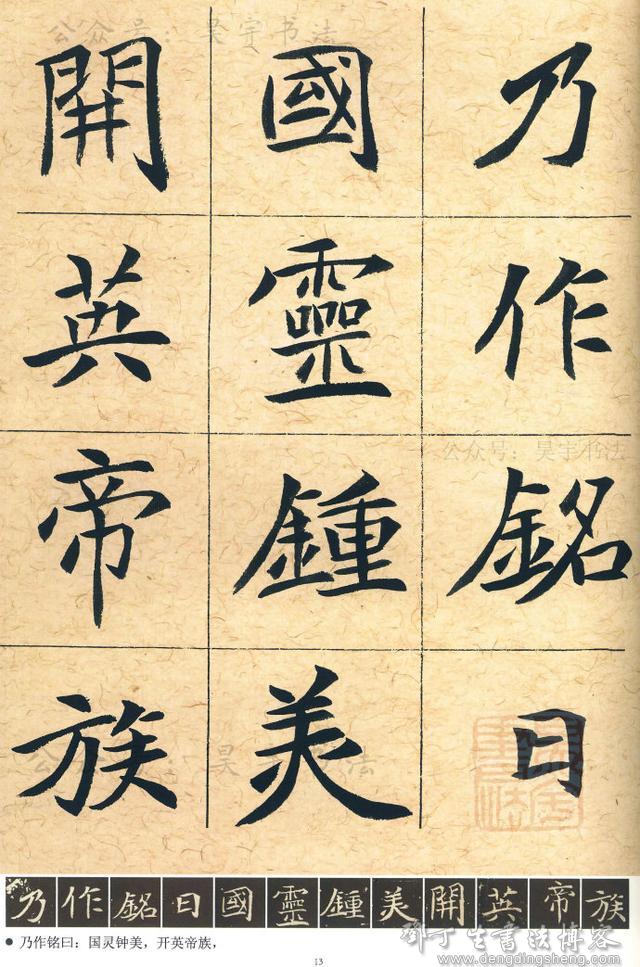 公众号：昊宇书法
乃作銘曰
國靈鍾美
開英帝族
公众号：昊宇书法
公众号：昊宇书法
乃作銘曰國靈鍾美開英帝族
● 乃作铭曰：国灵钟美，开英帝族，
13
邓丁生书法博客
www.dengdingsheng.com